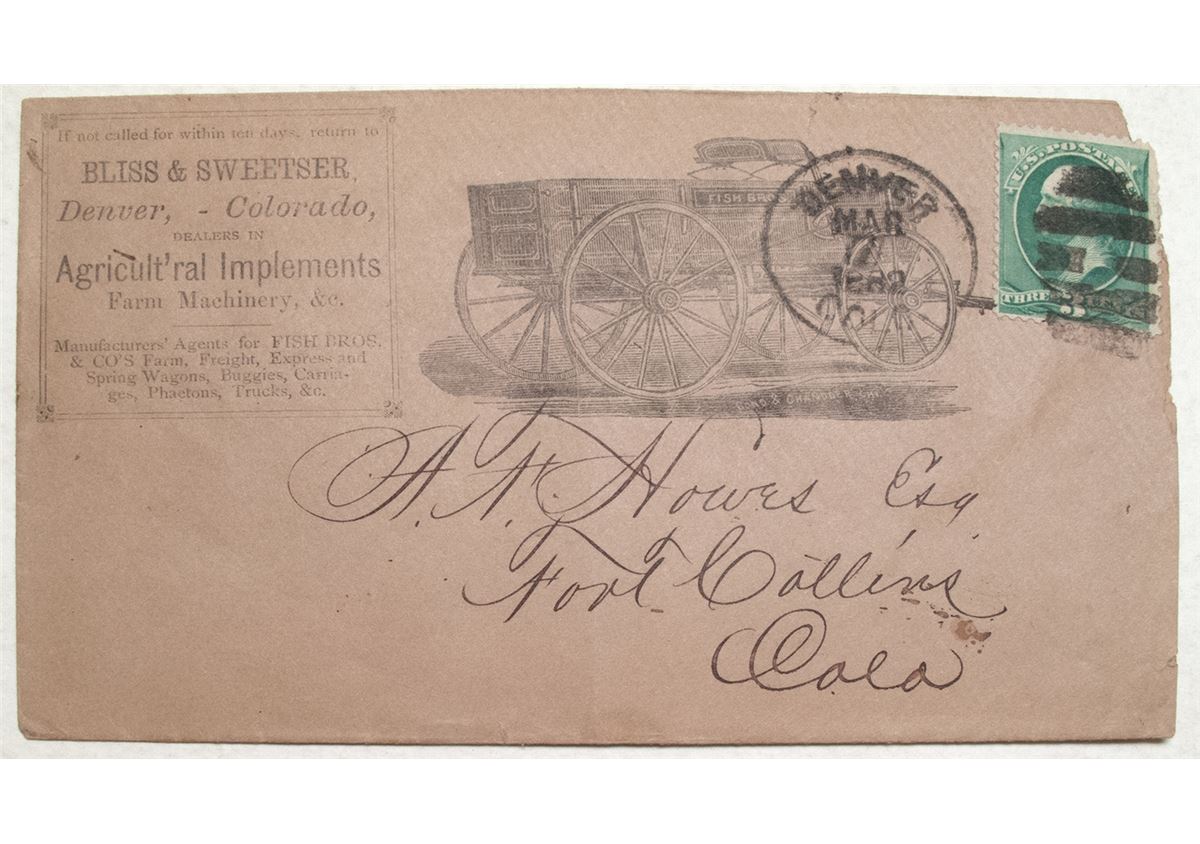 If not called for within ten days, return to
BLISS & SWEETSER,
Denver, - Colorado,
DEALERS IN
Agricult'ral Implements
Farm Machinery, &c.
Manufacturers' Agents for FISH BROS.
& CO'S Farm, Freight, Express and
Spring Wagons, Buggies, Carria-
ges, Phaetons, Trucks, &c.
FISH BRO
& CHANDLER
DENVER
MAR
U.S. POSTA
THREE
3
A. A. Howes Esq
Fort Collins
Colo